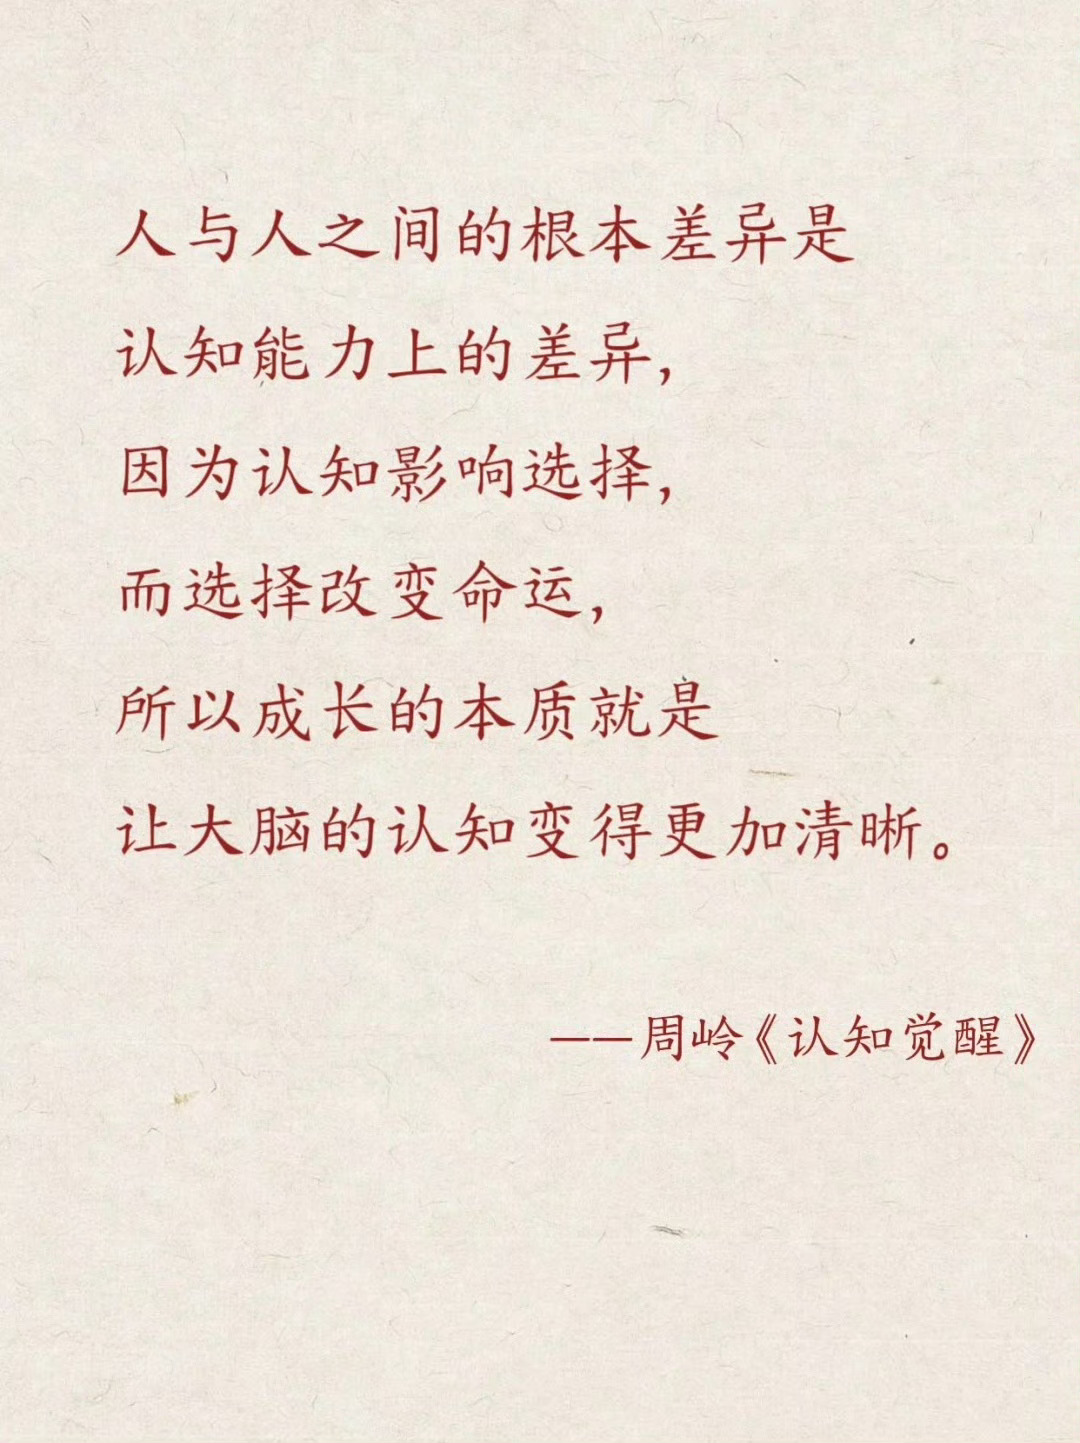 人与人之间的根本差异是
认知能力上的差异，
因为认知影响选择，
而选择改变命运，
所以成长的本质就是
让大脑的认知变得更加清晰。
——周岭《认知觉醒》